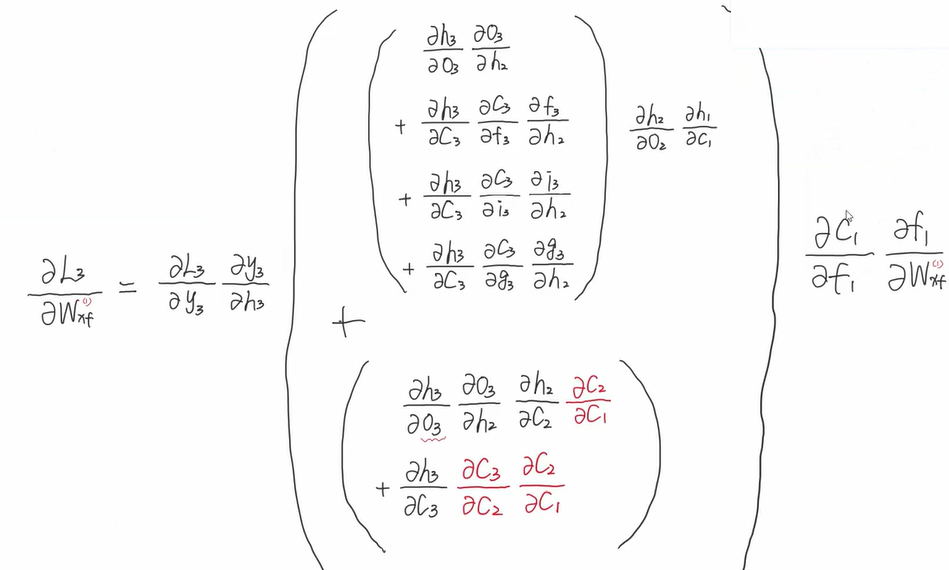 ∂L₃/∂W_xf⁽¹⁾ = ∂L₃/∂y₃ ∂y₃/∂h₃
∂h₃/∂O₃ ∂O₃/∂h₂
+ ∂h₃/∂C₃ ∂C₃/∂f₃ ∂f₃/∂h₂
+ ∂h₃/∂C₃ ∂C₃/∂i₃ ∂i₃/∂h₂
+ ∂h₃/∂C₃ ∂C₃/∂g₃ ∂g₃/∂h₂
∂h₂/∂O₂ ∂h₁/∂C₁
+
∂h₃/∂O₃ ∂O₃/∂h₂ ∂h₂/∂C₂ ∂C₂/∂C₁
+ ∂h₃/∂C₃ ∂C₃/∂C₂ ∂C₂/∂C₁
∂C₁/∂f₁ ∂f₁/∂W_xf⁽¹⁾